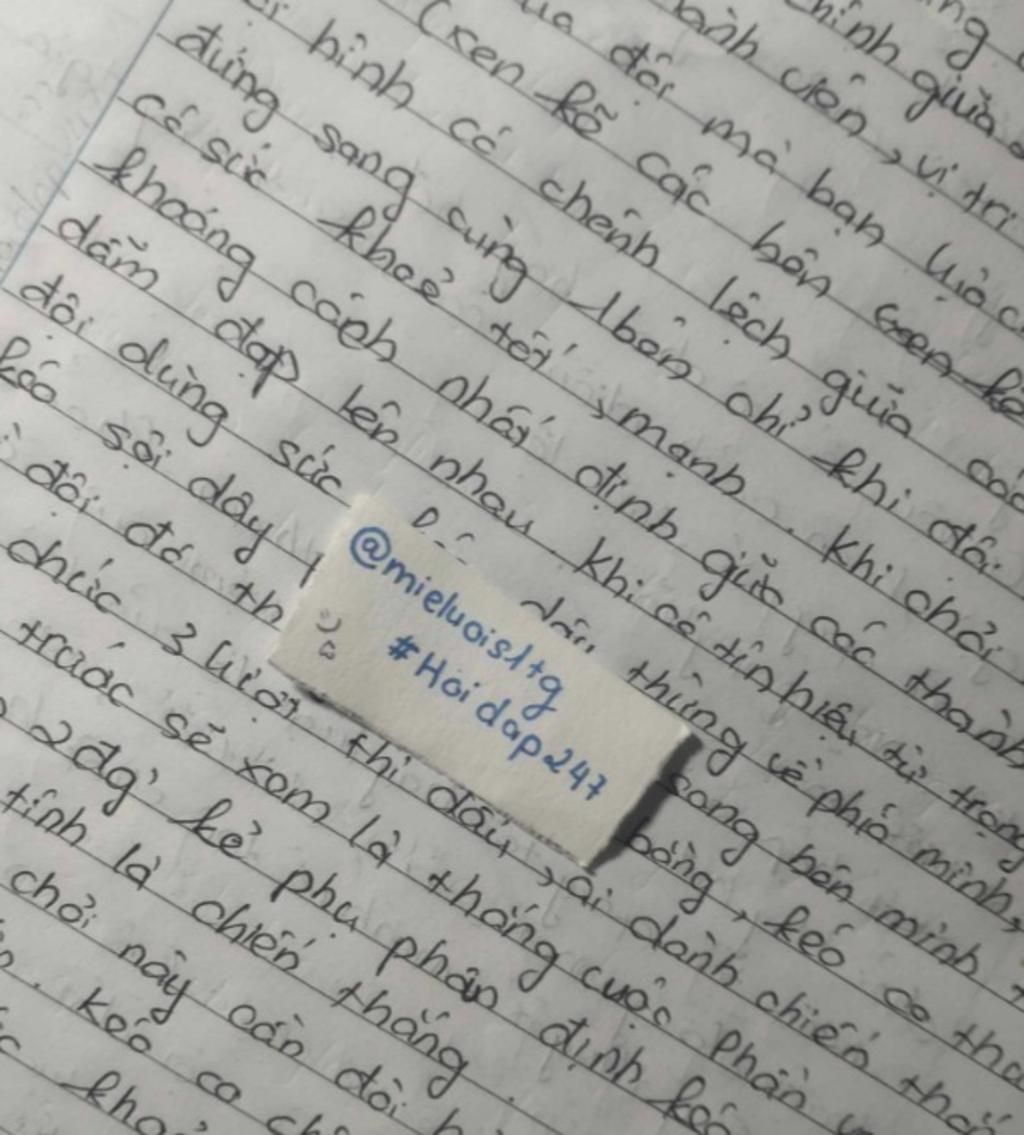 chính giữa
vị trí
đội mà bạn vừa
(xen kẽ các bên xen kẽ
hình có chênh lệch giữa các
đứng sang cùng 1 bên chỉ khi đội
có sức khoẻ tốt, mạnh. Khi chơi
khoảng cách nhất định giữa các thành
dẫm đạp lên nhau. Khi có tín hiệu từ trọng
đội dùng sức thừng về phía mình,
kéo sợi dây sang bên mình
đội đó bóng, kéo co
chức 3 lượt thi đấu, ai dành chiến
trước sẽ xem là thắng cuộc phần
2 đg' kẻ phụ phân định
tính là chiến thắng
chơi này cần đòi
kéo co
@mieluois1tg
#Hoidap247